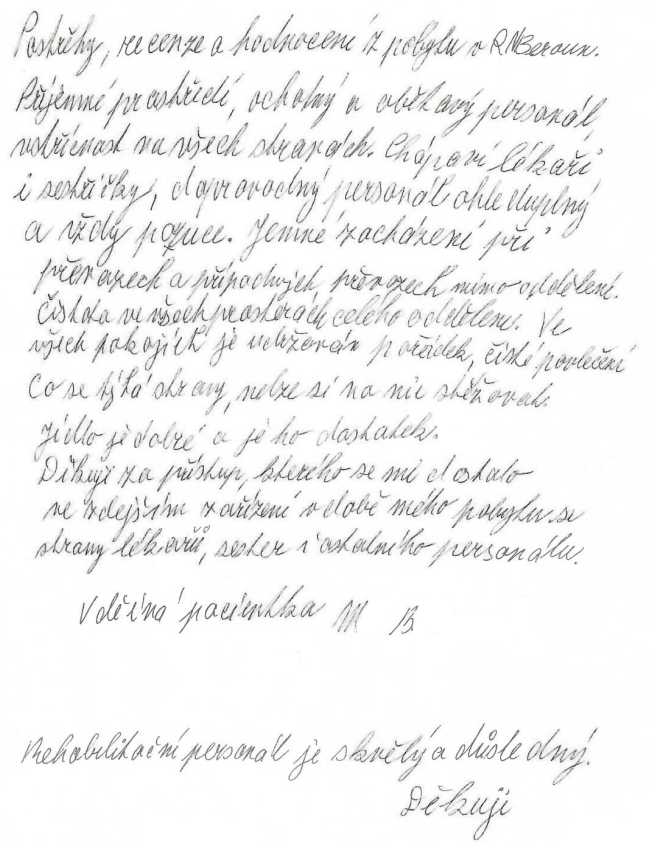 Postřehy, recenze a hodnocení z pobytu v RN Beroun.
Příjemné prostředí, ochotný a obětavý personál,
vstřícnost na všech stranách. Chápaví lékaři
i sestřičky, doprovodný personál ohleduplný
a vždy po ruce. Jemné zacházení při
převazech a případných převozech mimo oddělení.
Čistota ve všech prostorách celého oddělení. Ve
všech pokojích je udržován pořádek, čisté povlečení
Co se týká stravy, nelze si na nic stěžovat.
Jídlo je dobré a je ho dostatek.
Děkuji za přístup, kterého se mi dostalo
ve zdejším zařízení v době mého pobytu ze
strany lékařů, sester i ostatního personálu.
Vděčná pacientka M B.
Rehabilitační personál je skvělý a důsledný.
Děkuji